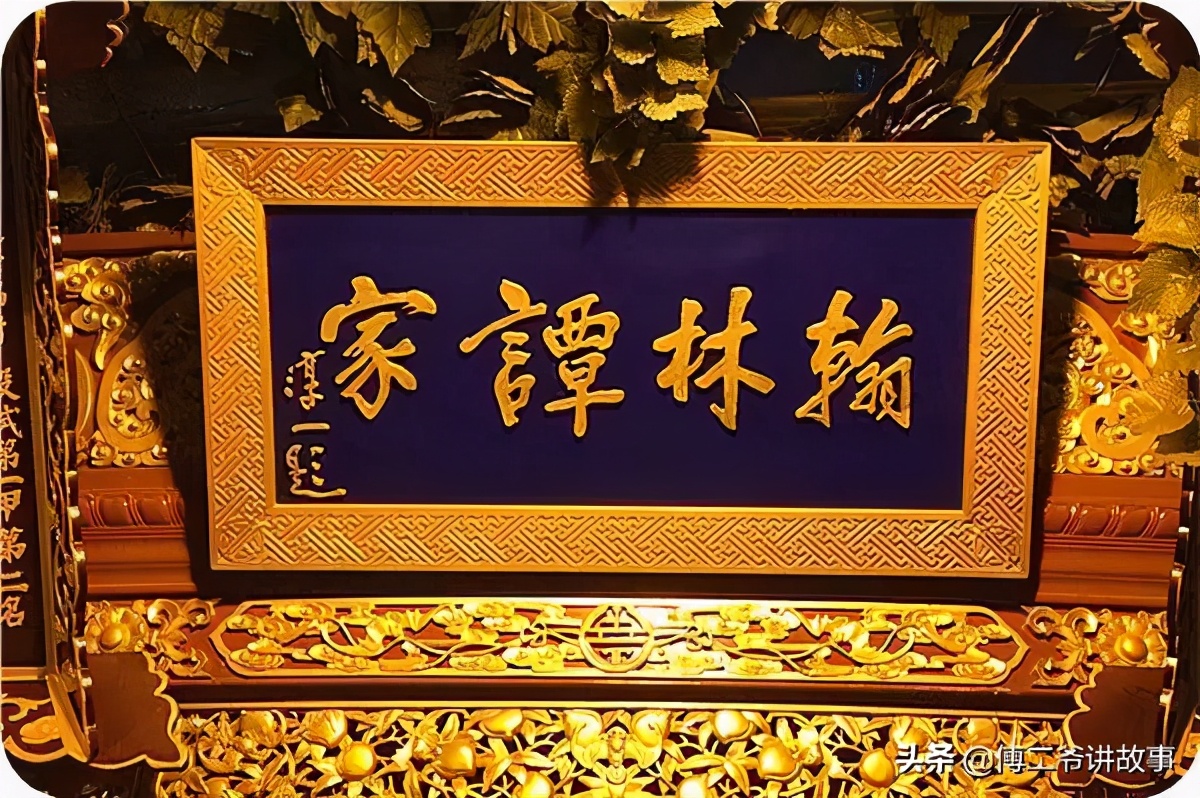 翰林譚家
淳一題
殿試第一甲第二名
头条 @傅二爷讲故事